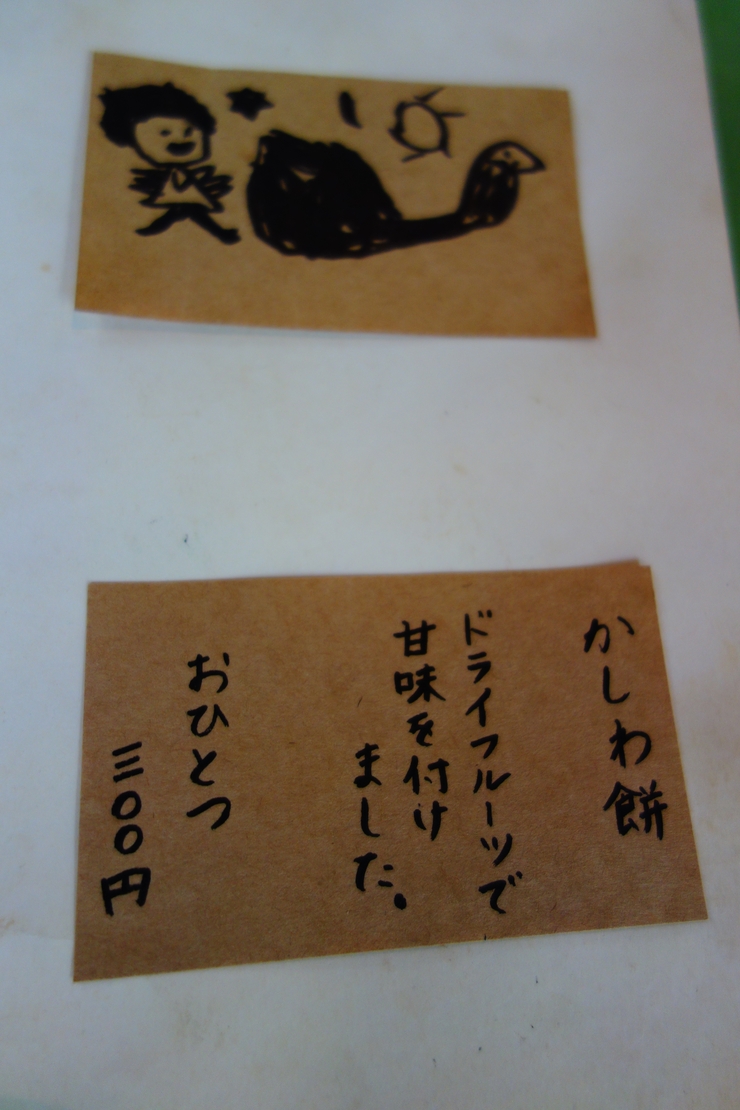 かしわ餅
ドライフルーツで
甘味を付け
ました。
おひとつ
三〇〇円